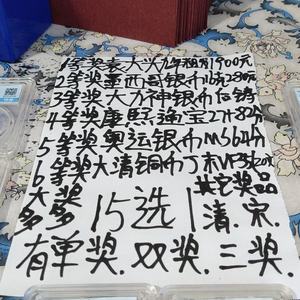 1等奖袁大头九年粗发900元
2等奖墨西哥银币鹰280元
3等奖大力神银币后铸
4等奖康熙通宝27H82分
5等奖奥运银币MS64分
6等奖大清铜币丁未VF35120元
大奖多多 15选1 其它奖品清.宋.
有单奖.双奖.三奖.